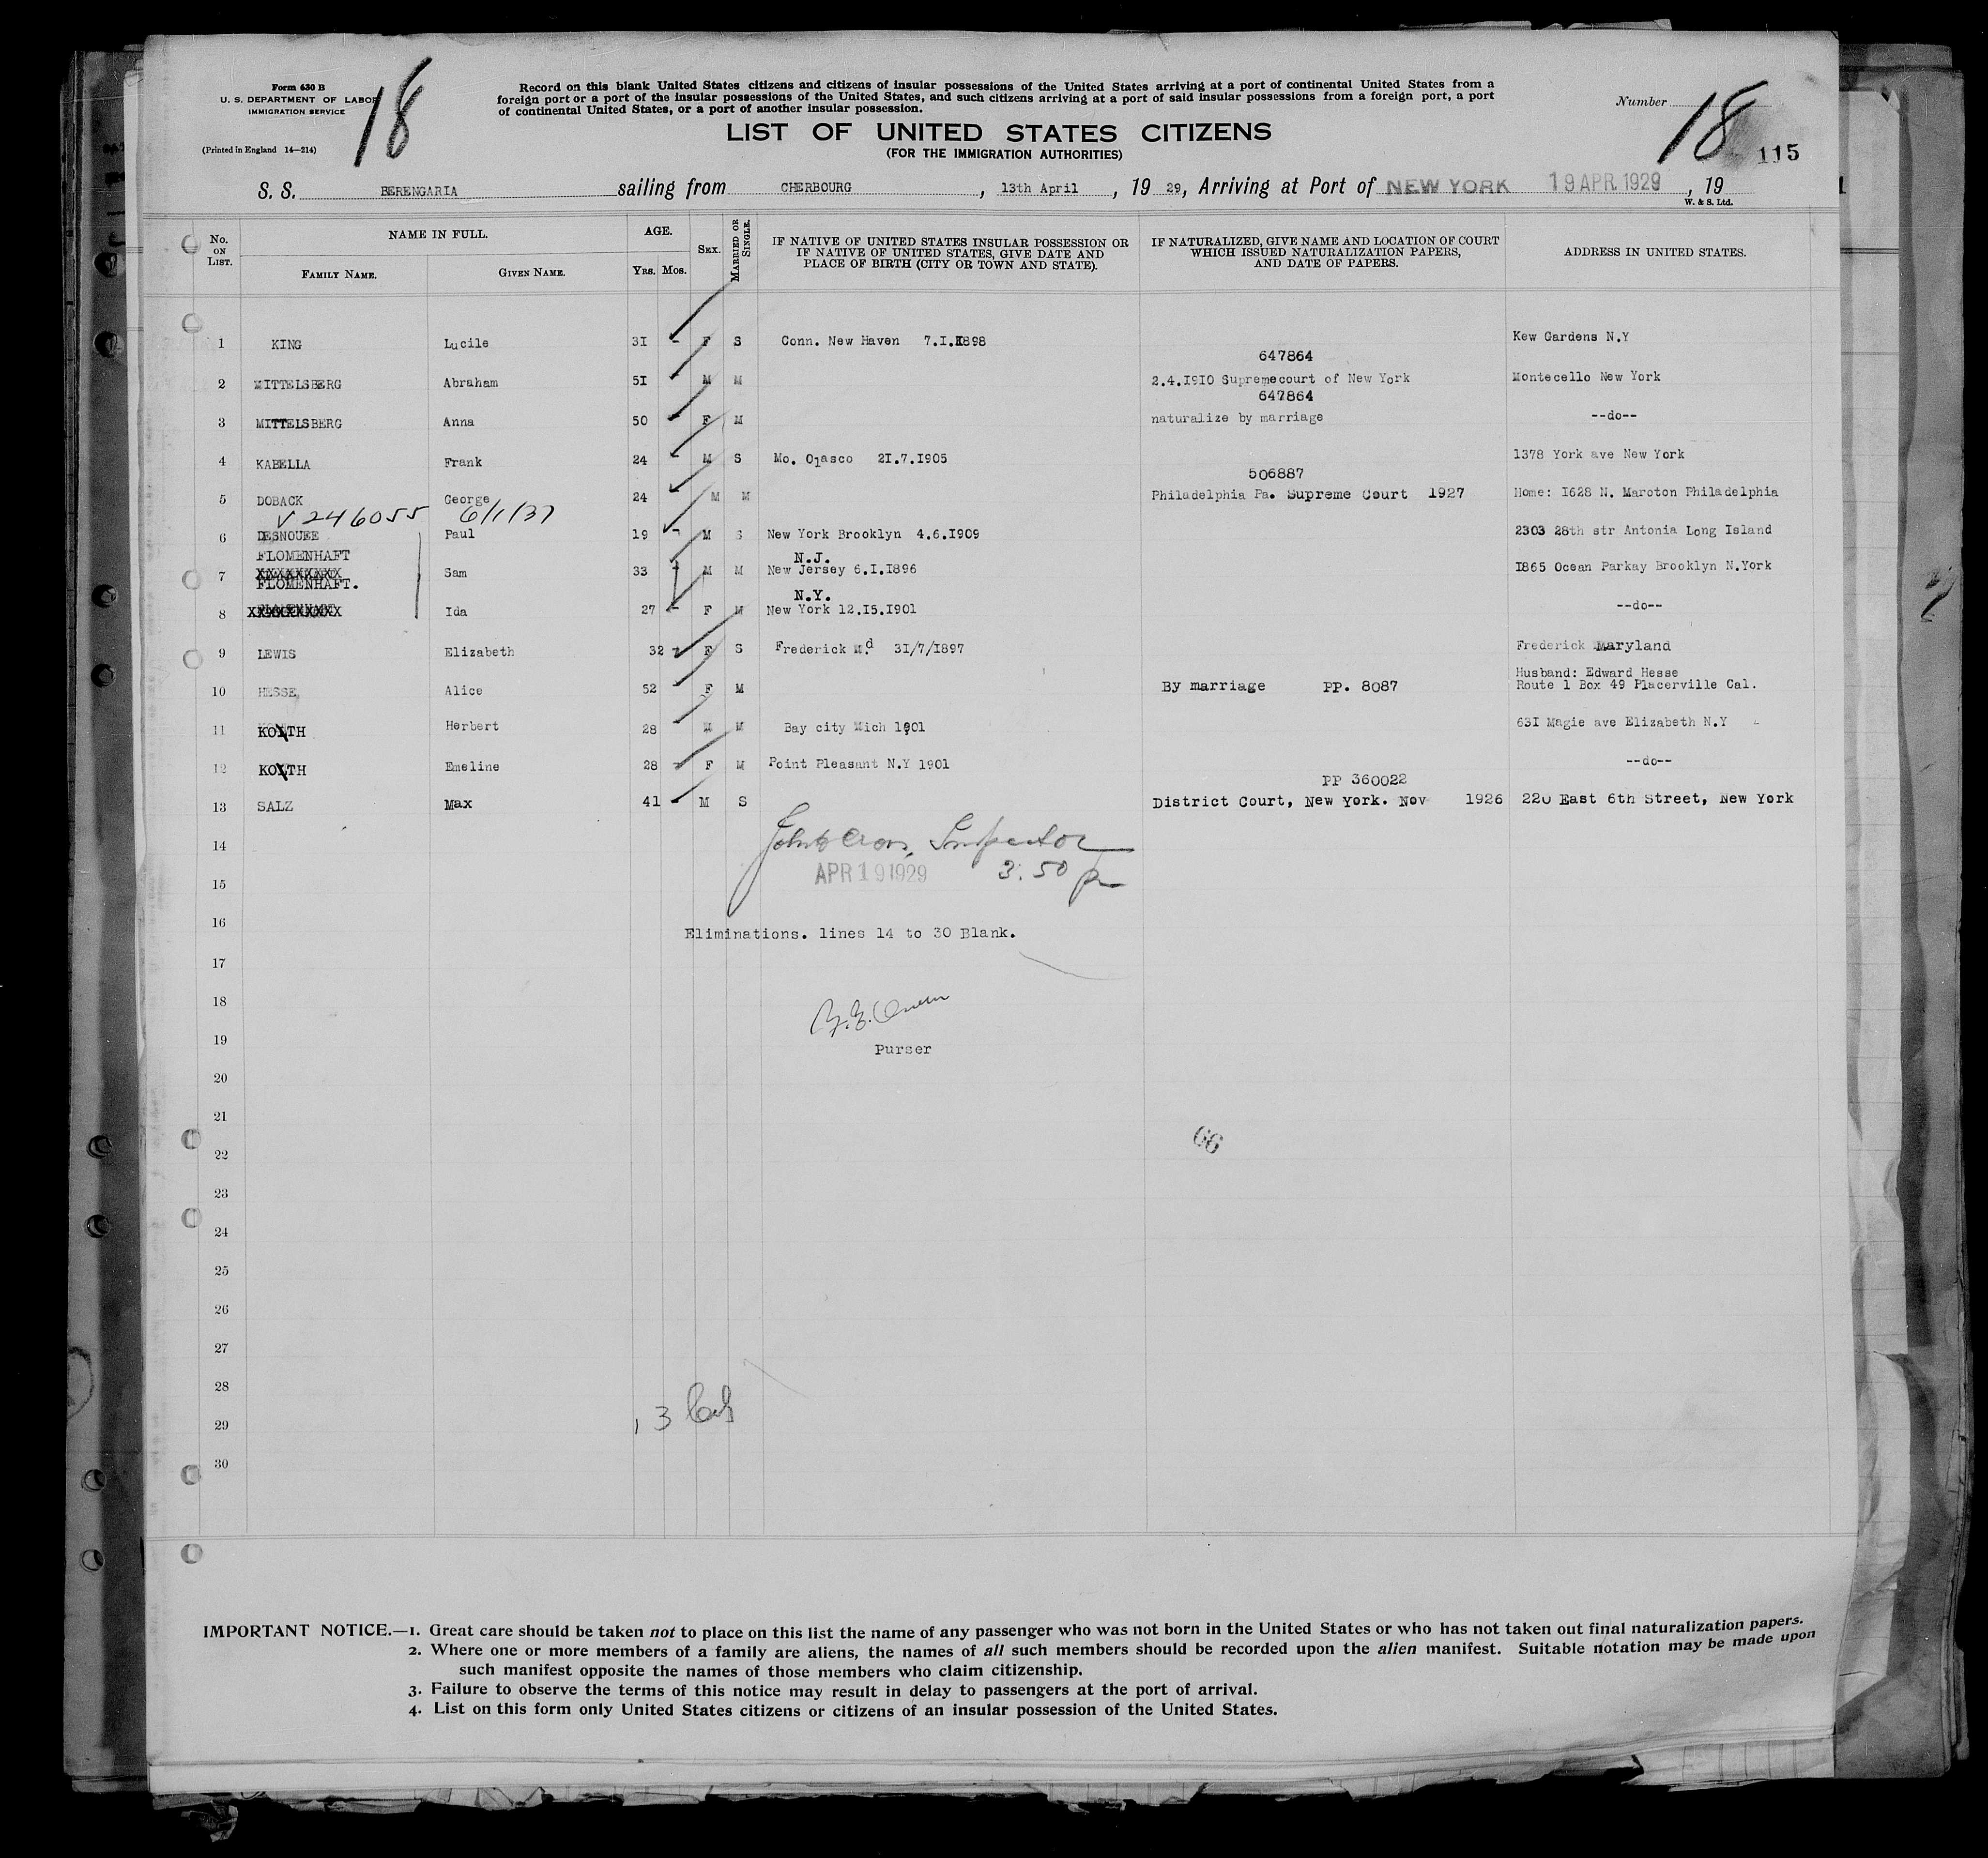 Form 630 B
U. S. DEPARTMENT OF LABOR
IMMIGRATION SERVICE
(Printed in England 14—214)
18
Record on this blank United States citizens and citizens of insular possessions of the United States arriving at a port of continental United States from a
foreign port or a port of the insular possessions of the United States, and such citizens arriving at a port of said insular possessions from a foreign port, a port
of continental United States, or a port of another insular possession.
LIST OF UNITED STATES CITIZENS
(FOR THE IMMIGRATION AUTHORITIES)
Number 18
115
S. S. BERENGARIA sailing from CHERBOURG, 13th April, 19 29, Arriving at Port of NEW YORK 19 APR 1929, 19
W. & S. Ltd.
No. ON LIST. NAME IN FULL. FAMILY NAME. GIVEN NAME. AGE. YRS. MOS. SEX. MARRIED OR SINGLE. IF NATIVE OF UNITED STATES INSULAR POSSESSION OR IF NATIVE OF UNITED STATES, GIVE DATE AND PLACE OF BIRTH (CITY OR TOWN AND STATE). IF NATURALIZED, GIVE NAME AND LOCATION OF COURT WHICH ISSUED NATURALIZATION PAPERS, AND DATE OF PAPERS. ADDRESS IN UNITED STATES.
1 KING Lucile 3I - F S Conn. New Haven 7.I.1898 Kew Gardens N.Y
647864
2 MITTELSBERG Abraham 5I M M 2.4.I9I0 Supremecourt of New York Montecello New York
647864
3 MITTELSBERG Anna 50 - F M naturalize by marriage --do--
4 KABELLA Frank 24 - M S Mo. Olasco 2I.7.I905 1378 York ave New York
506887
5 DOBACK George 24 - M M Philadelphia Pa. Supreme Court 1927 Home: I628 N. Maroton Philadelphia
V 246055 6/1/37
6 DESNOUEE Paul 19 - M S New York Brooklyn 4.6.I909 2303 28th str Antonia Long Island
FLOMENHAFT N.J.
7 Sam 33 M M New Jersey 6.I.I896 I865 Ocean Parkay Brooklyn N.York
FLOMENHAFT. N.Y.
8 Ida 27 - F M New York 12.I5.I901 --do--
9 LEWIS Elizabeth 32 - F S Frederick Md. 3I/7/I897 Frederick Maryland
Husband: Edward Hesse
10 HESSE Alice 52 - F M By marriage PP. 8087 Route 1 Box 49 Placerville Cal.
11 KOTH Herbert 28 M M Bay city Mich 1901 63I Magie ave Elizabeth N.Y
12 KOTH Emeline 28 - F M Point Pleasant N.Y 1901 --do--
PP 360022
13 SALZ Max 41 - M S District Court, New York. Nov 1926 220 East 6th Street, New York
14
Inspector
15
APR 19 1929 3.50 p
16
Eliminations. lines 14 to 30 Blank.
17
18
19
Purser
20
21
66
22
23
24
25
26
27
28
29
13
30
IMPORTANT NOTICE.—1. Great care should be taken not to place on this list the name of any passenger who was not born in the United States or who has not taken out final naturalization papers.
2. Where one or more members of a family are aliens, the names of all such members should be recorded upon the alien manifest. Suitable notation may be made upon
such manifest opposite the names of those members who claim citizenship.
3. Failure to observe the terms of this notice may result in delay to passengers at the port of arrival.
4. List on this form only United States citizens or citizens of an insular possession of the United States.